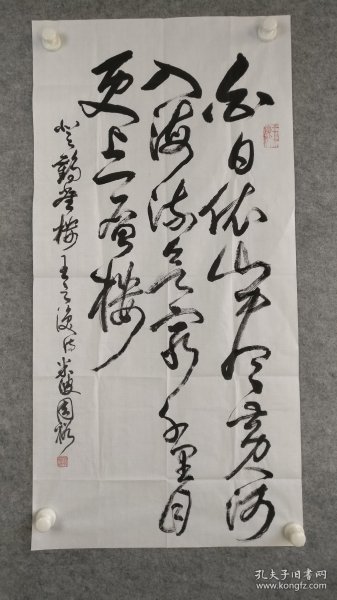 白日依山尽黄河
入海流欲穷千里目
更上一层楼
登鹳雀楼王之涣诗
孔夫子旧书网
www.kongfz.com